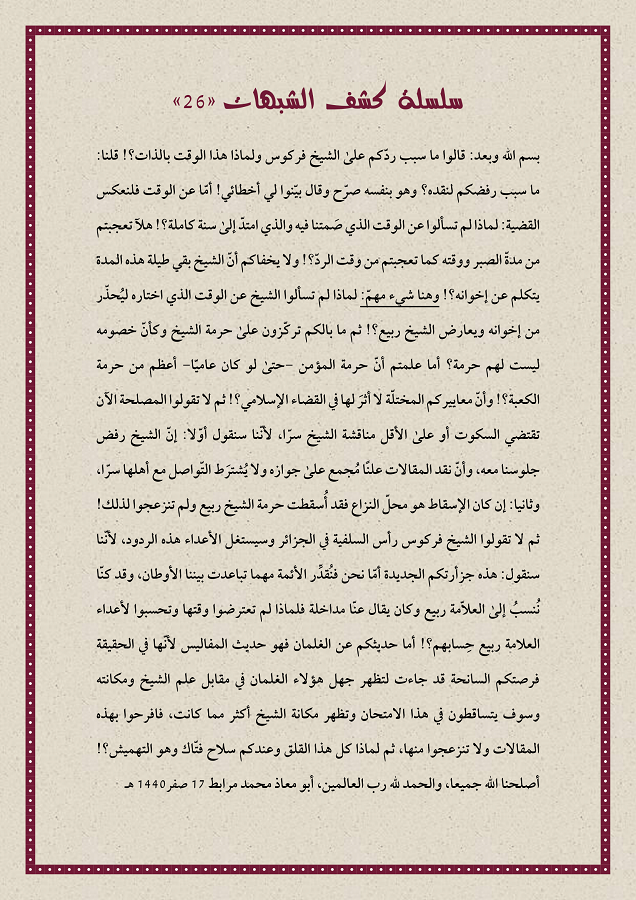 سلسلة كشف الشبهات «26»
بسم الله وبعد: قالوا ما سبب ردّكم علىٰ الشيخ فركوس ولماذا هذا الوقت بالذات؟! قلنا:
ما سبب رفضكم لنقده؟ وهو بنفسه صرّح وقال بيّنوا لي أخطائي! أمّا عن الوقت فلنعكس
القضية: لماذا لم تسألوا عن الوقت الذي صَمتنا فيه والذي امتدّ إلىٰ سنة كاملة؟! هلاّ تعجبتم
من مدةّ الصبر ووقته كما تعجبتم من وقت الردّ؟! ولا يخفاكم أنّ الشيخ بقي طيلة هذه المدة
يتكلم عن إخوانه؟! وهنا شيء مهمّ: لماذا لم تسألوا الشيخ عن الوقت الذي اختاره ليُحذّر
من إخوانه ويعارض الشيخ ربيع؟! ثم ما بالكم تركّزون علىٰ حرمة الشيخ وكأنّ خصومه
ليست لهم حرمة؟ أما علمتم أنّ حرمة المؤمن –حتىٰ لو كان عاميّا– أعظم من حرمة
الكعبة؟! وأنّ معاييركم المختلّة لا أثرَ لها في القضاء الإسلامي؟! ثم لا تقولوا المصلحة الآن
تقتضي السكوت أو علىٰ الأقل مناقشة الشيخ سرّا، لأنّنا سنقول أوّلا: إنّ الشيخ رفض
جلوسنا معه، وأنّ نقد المقالات علنًا مُجمع علىٰ جوازه ولا يُشترَط التّواصل مع أهلها سرّا،
وثانيا: إن كان الإسقاط هو محلّ النزاع فقد أُسقطت حرمة الشيخ ربيع ولم تنزعجوا لذلك!
ثم لا تقولوا الشيخ فركوس رأس السلفية في الجزائر وسيستغل الأعداء هذه الردود، لأنّنا
سنقول: هذه جزأرتكم الجديدة أمّا نحن فنُقدِّر الأئمة مهما تباعدت بيننا الأوطان، وقد كنّا
نُنسبُ إلىٰ العلاّمة ربيع وكان يقال عنّا مداخلة فلماذا لم تعترضوا وقتها وتحسبوا لأعداء
العلامة ربيع حِسابهم؟! أما حديثكم عن الغلمان فهو حديث المفاليس لأنّها في الحقيقة
فرصتكم السانحة قد جاءت لتظهر جهل هؤلاء الغلمان في مقابل علم الشيخ ومكانته
وسوف يتساقطون في هذا الامتحان وتظهر مكانة الشيخ أكثر مما كانت، فافرحوا بهذه
المقالات ولا تنزعجوا منها، ثم لماذا كل هذا القلق وعندكم سلاح فتّاك وهو التهميش؟!
أصلحنا الله جميعا، والحمد لله رب العالمين، أبو معاذ محمد مرابط 17 صفر 1440 هـ